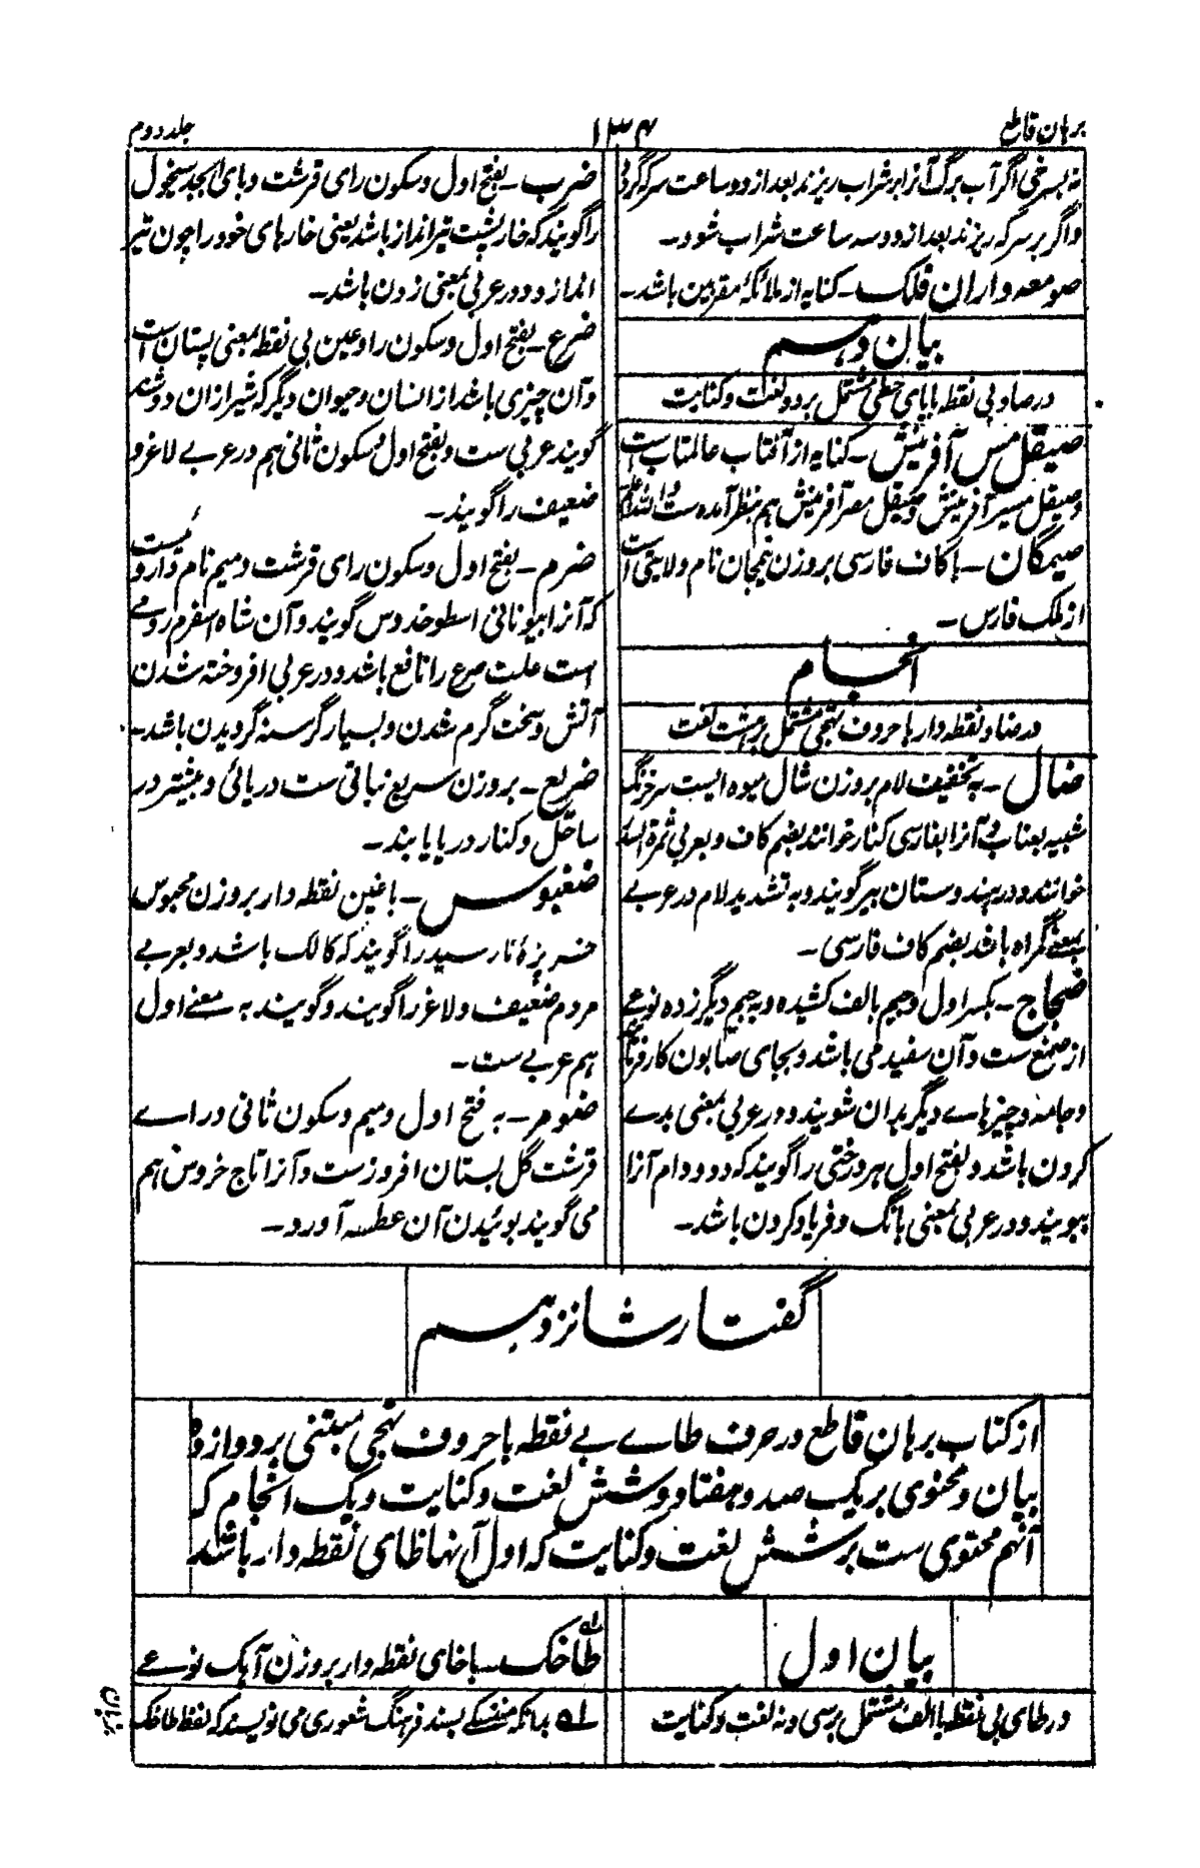 برہان قاطع
۱۳۴
جلد دوم
نہ بسرخی اگر آب برگ آنرا بر شراب ریزند بعد از دو ساعت سرکہ گردد
و اگر بر سرکہ ریزند بعد از دو سہ ساعت شراب شود۔
صومعہ داران فلک۔ کنایہ از ملائکۂ مقربین باشد۔
بیان دہم
در صاد بی نقطہ با یای حطی مشتمل بر دو لغت و کنایت
صیقل مس آفرینش۔ کنایہ از آفتاب عالمتاب است
وصیقل مسیر آفرینش وصیقل مصر آفرینش ہم بنظر آمدہ ست
صیمگان۔ باکاف فارسی بروزن نیمجان نام ولایتی است
از ملک فارس۔
انجام
در ضاد نقطہ دار با حروف تہجی مشتمل بر ہشت لغت
ضال۔ بہ تخفیف لام بروزن شال میوہ ایست سرخ رنگ
شبیہ بعناب و آنرا بفارسی کنار خوانند بضم کاف و بعربی ثمرۃ السدر
خوانند و در ہندوستان بیر گویند و بہ تشدید لام در عربے
بمعنے گمراہ باشد بضم کاف فارسی۔
ضجاج۔ بکسر اول و جیم بالف کشیدہ و بہ جیم دیگر زدہ نوعے
از صمغ ست و آن سفید می باشد و بجای صابون کار فرمایند
و جامہ و چیزہاے دیگر بدان شویند و در عربی بمعنی بدے
کردن باشد و بفتح اول ہر درختی را گویند کہ دد و دام آنرا
ببویند و در عربی بمعنی بانگ و فریاد کردن باشد۔
ضرب۔ بفتح اول و سکون رای قرشت و بای ابجد سیخول
را گویند کہ خارپشت تیرانداز باشد یعنی خارہای خود را چون تیر
اندازد و در عربی بمعنی زدن باشد۔
ضرع۔ بفتح اول و سکون را و عین بی نقطہ بمعنی پستان است
و آن چیزی باشد از انسان و حیوان دیگر کہ شیر ازان دوشند
گویند عربی ست و بفتح اول و سکون ثانی ہم در عربے لاغر و
ضعیف را گویند۔
ضرم۔ بفتح اول و سکون رای قرشت و میم نام داروئیست
کہ آنرا بیونانی اسطوخدوس گویند و آن شاہ اسفرم رومے
است علت صرع را نافع باشد و در عربی افروختہ شدن
آتش و سخت گرم شدن و بسیار گرسنہ گردیدن باشد۔
ضریع۔ بروزن سریع نباتی ست دریائی و بیشتر در
ساحل و کنار دریا یابند۔
ضغبوس۔ با غین نقطہ دار بروزن محبوس
خربزۂ نارسیدہ را گویند کہ کالک باشد و بعربے
مردم ضعیف و لاغر را گویند و گویند بہ معنے اول
ہم عربے ست۔
ضومر۔ بہ فتح اول و میم و سکون ثانی و راے
قرشت گل بستان افروزست و آنرا تاج خروس ہم
می گویند بوئیدن آن عطسہ آورد۔
گفتار شانزدہم
از کتاب برہان قاطع در حرف طاے بے نقطہ با حروف تہجی مبتنی بر دوازدہ
بیان و محتوی بر یک صد و ہفتاد و شش لغت و کنایت و یک انجام کہ
آنہم محتوی ست بر شش لغت و کنایت کہ اول آنہا ظای نقطہ دار باشد
بیان اول
در طای بی نقطہ با الف مشتمل بر سی و نہ لغت و کنایت
طاخک۔ با خای نقطہ دار بروزن آہک نوعے
لہ بدانکہ بسند فرہنگ شعوری می نویسند کہ لفظ طاخک